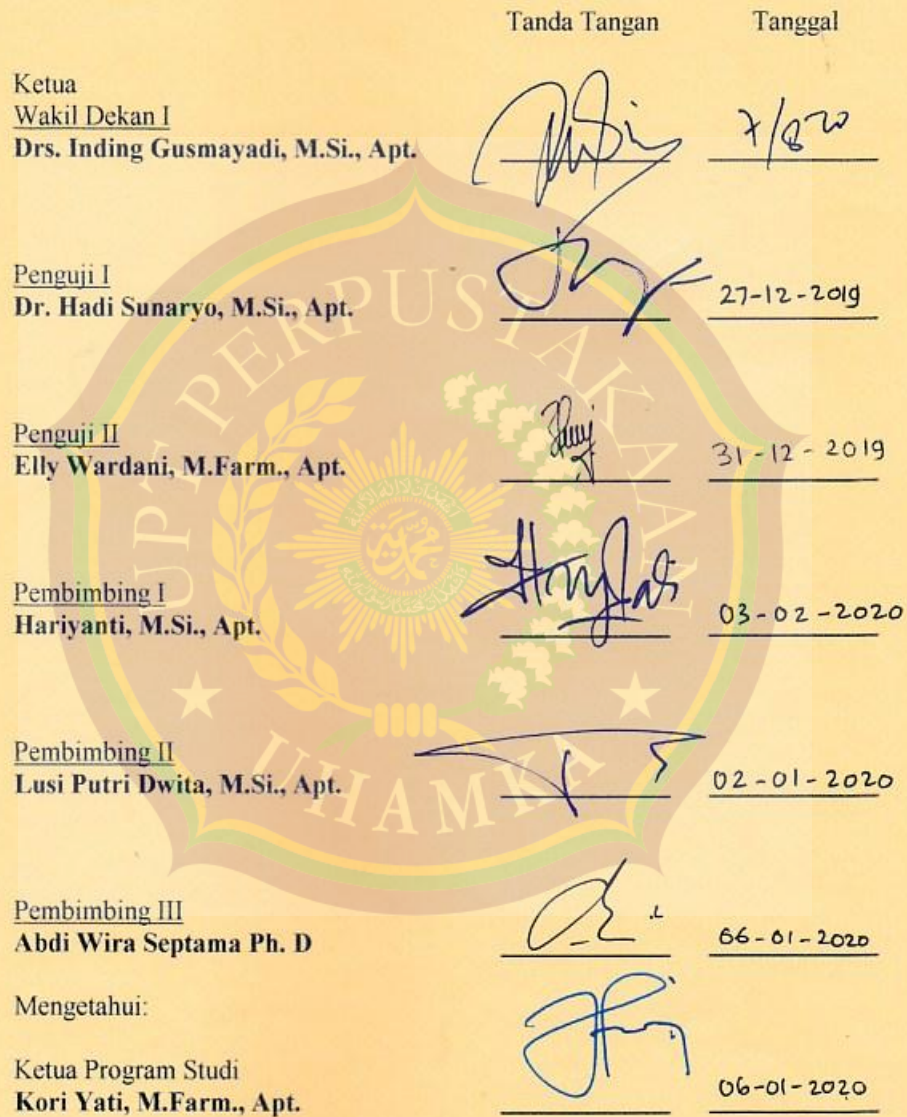 Tanda Tangan Tanggal
Ketua
Wakil Dekan I
Drs. Inding Gusmayadi, M.Si., Apt. 7/8 20
Penguji I
Dr. Hadi Sunaryo, M.Si., Apt. 27-12-2019
Penguji II
Elly Wardani, M.Farm., Apt. 31-12-2019
Pembimbing I
Hariyanti, M.Si., Apt. 03-02-2020
Pembimbing II
Lusi Putri Dwita, M.Si., Apt. 02-01-2020
Pembimbing III
Abdi Wira Septama Ph. D 66-01-2020
Mengetahui:
Ketua Program Studi
Kori Yati, M.Farm., Apt. 06-01-2020
UPT PERPUSTAKAAN
UHAMKA